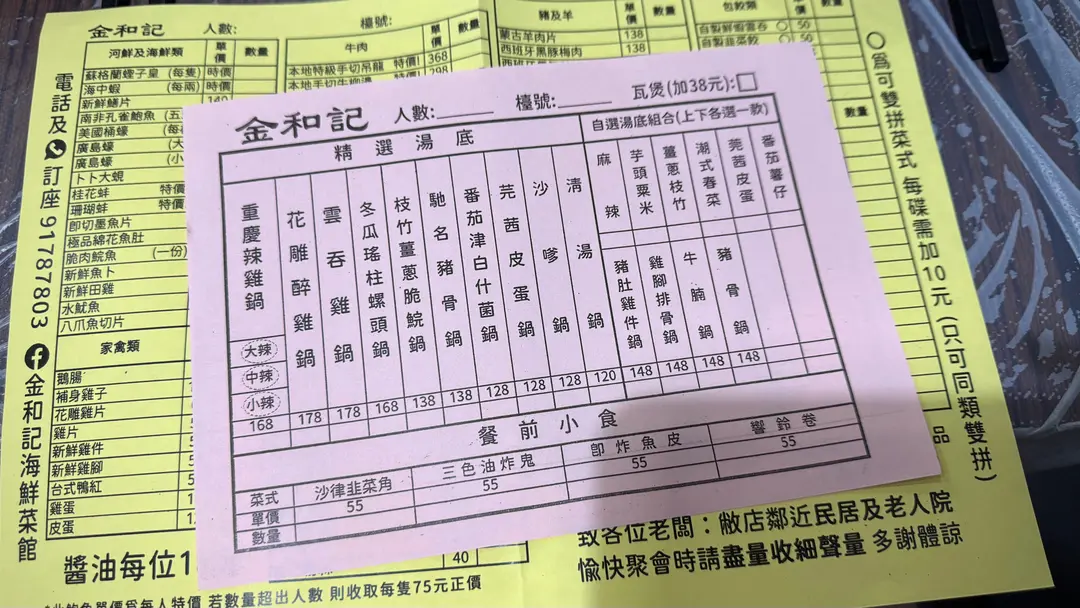 金和記 人數: 檯號:
河鮮及海鮮類 單價 數量
蘇格蘭蟶子皇 (每隻) 時價
海中蝦 (每兩) 時價
新鮮鱔片 140
南非孔雀鮑魚 (五
美國桶蠔
廣島蠔 (大
廣島蠔 (小
卜卜大蜆
桂花蚌 特價
珊瑚蚌 特價
即切墨魚片
極品綿花魚肚
脆肉鯇魚 (一份)
新鮮魚卜
新鮮田雞
水魷魚
八爪魚切片
家禽類
鵝腸
補身雞子
花雕雞片
雞片
新鮮雞件
新鮮雞腳
台式鴨紅
雞蛋
皮蛋
牛肉 單價 數量
本地特級手切吊龍 特價! 368
298
豬及羊 單價 數量
蒙古羊肉片 138
西班牙黑豚梅肉 138
包餃類 單價 數量
自製鮮蝦雲吞 ○ 50
自製韭菜餃 ○ 50
數量
電話及訂座 91787803 金和記海鮮菜館
○為可雙拼菜式 每碟需加10元(只可同類雙拼)
金和記 人數: 檯號: 瓦煲(加38元):□
精選湯底
重慶辣雞鍋 大辣 中辣 小辣 168
花雕醉雞鍋 178
雲吞雞鍋 178
冬瓜瑤柱螺頭鍋 168
枝竹薑蔥脆鯇鍋 138
馳名豬骨鍋 138
番茄津白什菌鍋 128
芫茜皮蛋鍋 128
沙嗲鍋 128
清湯鍋 120
自選湯底組合(上下各選一款)
麻辣
芋頭粟米
薑蔥枝竹
潮式春菜
芫茜皮蛋
番茄薯仔
豬肚雞件鍋 148
雞腳排骨鍋 148
牛腩鍋 148
豬骨鍋 148
餐前小食
菜式 沙律韭菜角 三色油炸鬼 即炸魚皮 響鈴卷
單價 55 55 55 55
數量
品
40
醬油每位1
致各位老闆：敝店鄰近民居及老人院
愉快聚會時請盡量收細聲量 多謝體諒
若數量超出人數 則收取每隻75元正價